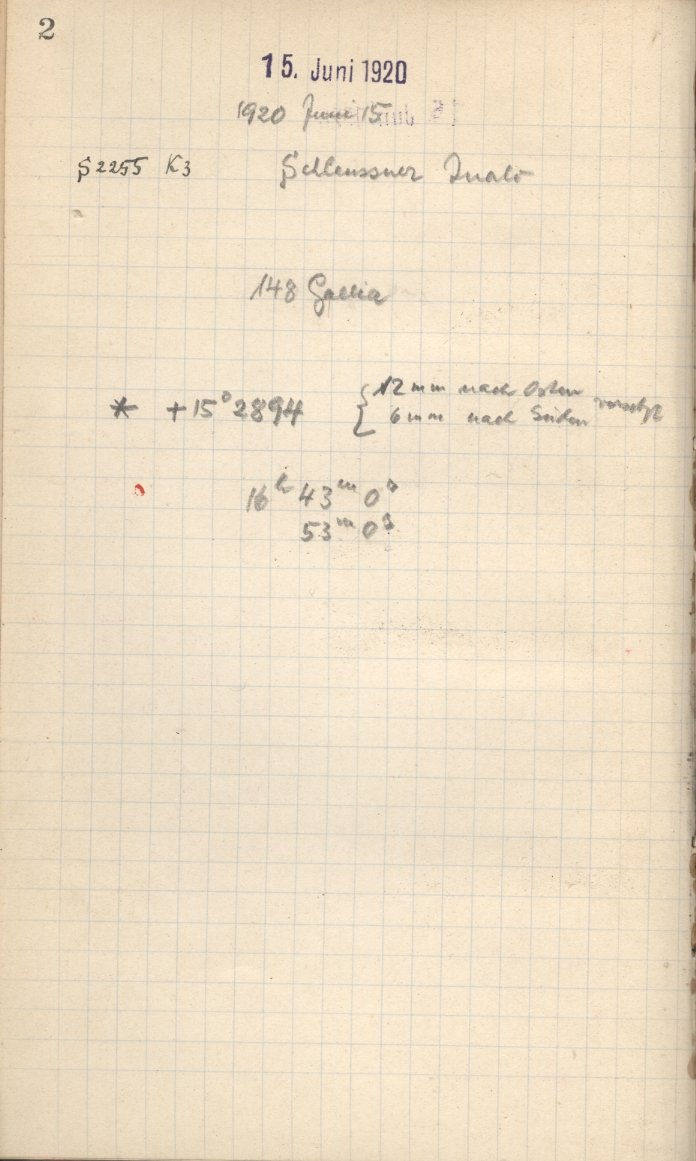 2
15. Juni 1920
1920 Juni 15
S2255 K3 Schleussner
148 Gallia
* +15° 2894 { 12 mm nach Osten
6 mm nach Süden versetzt
16h 43m 0s
53m 0s